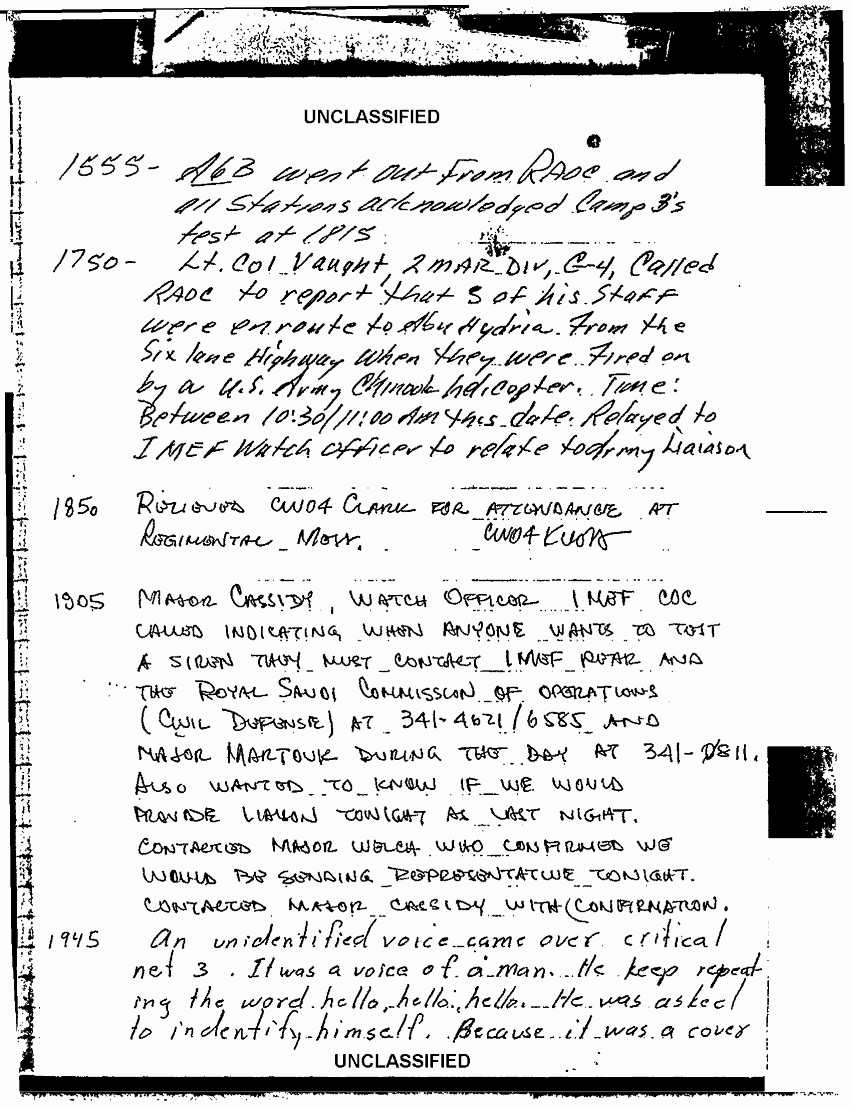 UNCLASSIFIED
1555- A6B went out From RAOC and
all Stations acknowledged Camp 3's
test at 1815
1750- Lt. Col Vaught, 2 MAR Div, G-4, Called
RAOC to report that 5 of his Staff
were enroute to Abu Hydria From the
Six lane Highway when they were Fired on
by a U.S. Army Chinook helicopter. Time:
Between 10:30/11:00 Am this date. Relayed to
I MEF Watch officer to relate to Army Liaison
1850 RELIEVED CWO4 CLARK FOR ATTENDANCE AT
REGIMENTAL MESS. CWO4
1905 MAJOR CASSIDY, WATCH OFFICER I MEF COC
CALLED INDICATING WHEN ANYONE WANTS TO TEST
A SIREN THEY MUST CONTACT I MEF REAR AND
THE ROYAL SAUDI COMMISSION OF OPERATIONS
(CIVIL DEFENSE) AT 341-4621/6585 AND
MAJOR MARTOUK DURING THE DAY AT 341-0811.
ALSO WANTED TO KNOW IF WE WOULD
PROVIDE LIAISON TONIGHT AS LAST NIGHT.
CONTACTED MAJOR WELCH WHO CONFIRMED WE
WOULD BE SENDING REPRESENTATIVE TONIGHT.
CONTACTED MAJOR CASSIDY WITH CONFIRMATION.
1945 An unidentified voice came over critical
net 3. It was a voice of a man. He keep repeat
ing the word hello, hello, hello. He was asked
to indentify himself. Because it was a cover
UNCLASSIFIED